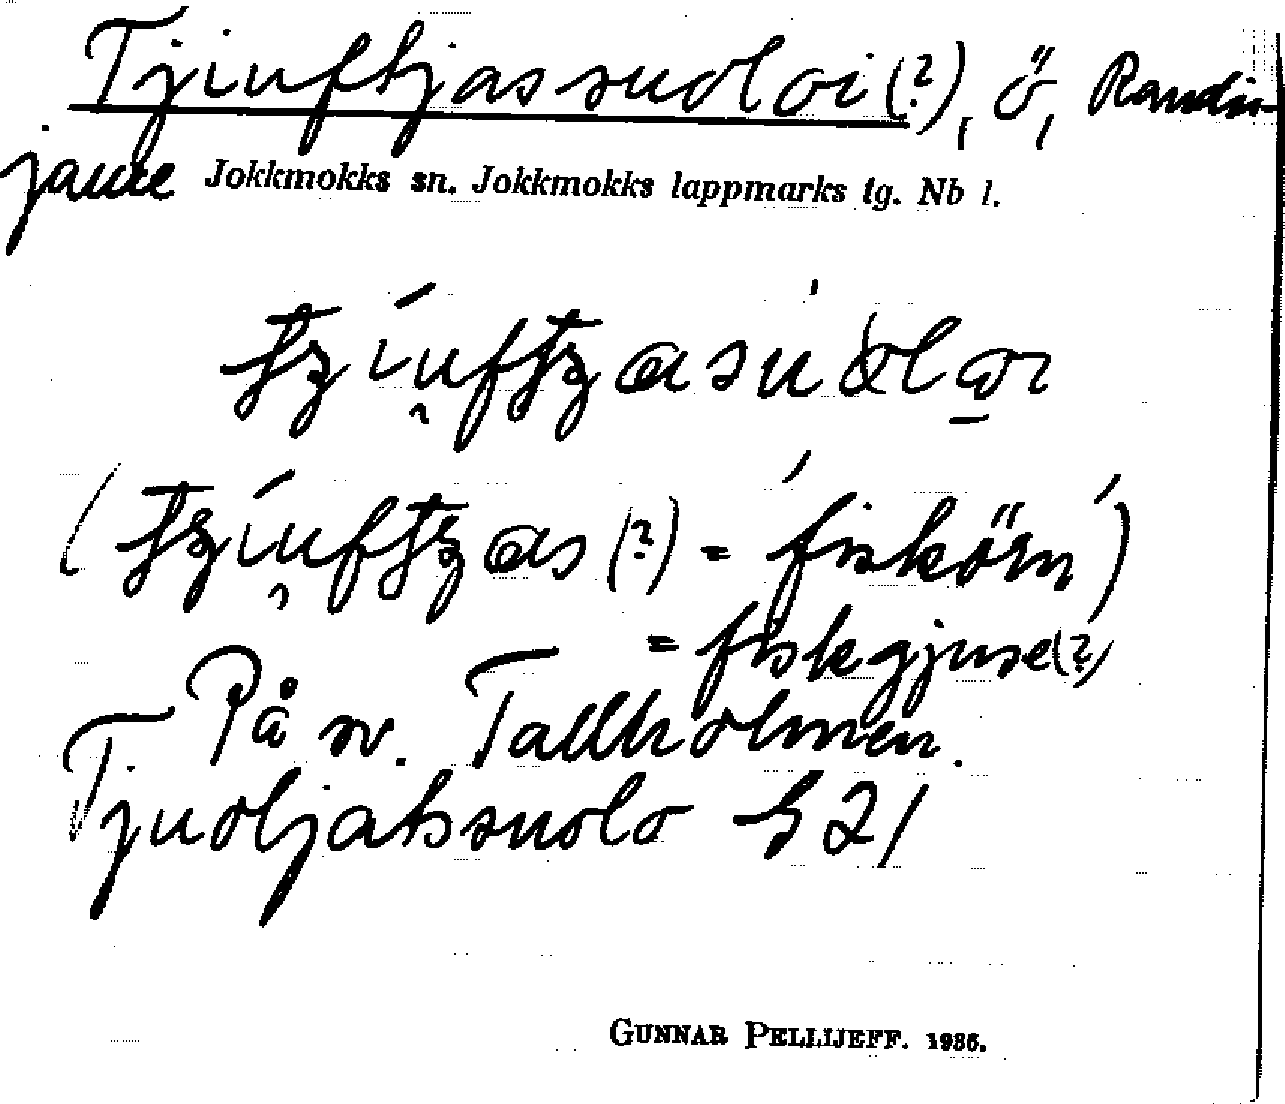 Tjiuftjassuoloi(?), ö, Randi-
jaure Jokkmokks sn. Jokkmokks lappmarks tg. Nb l.
(?) = fiskörn)
= fiskgjuse(?)
På sv. Tallholmen.
Tjuoljaksuolo h 21
GUNNAR PELLIJEFF. 1936.